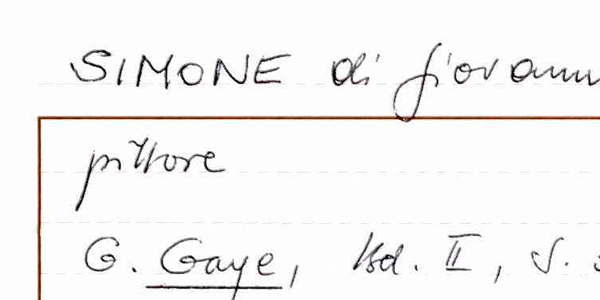 SIMONE di Giovann
pittore
G. Gaye, Bd. II, S.